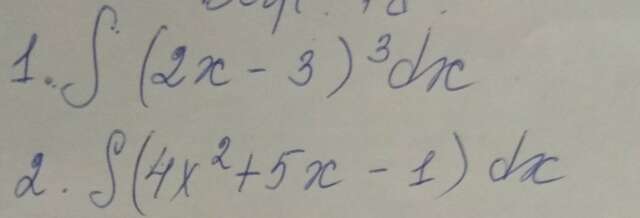 1. ∫ (2x - 3)³dx
2. ∫(4x²+5x - 1) dx